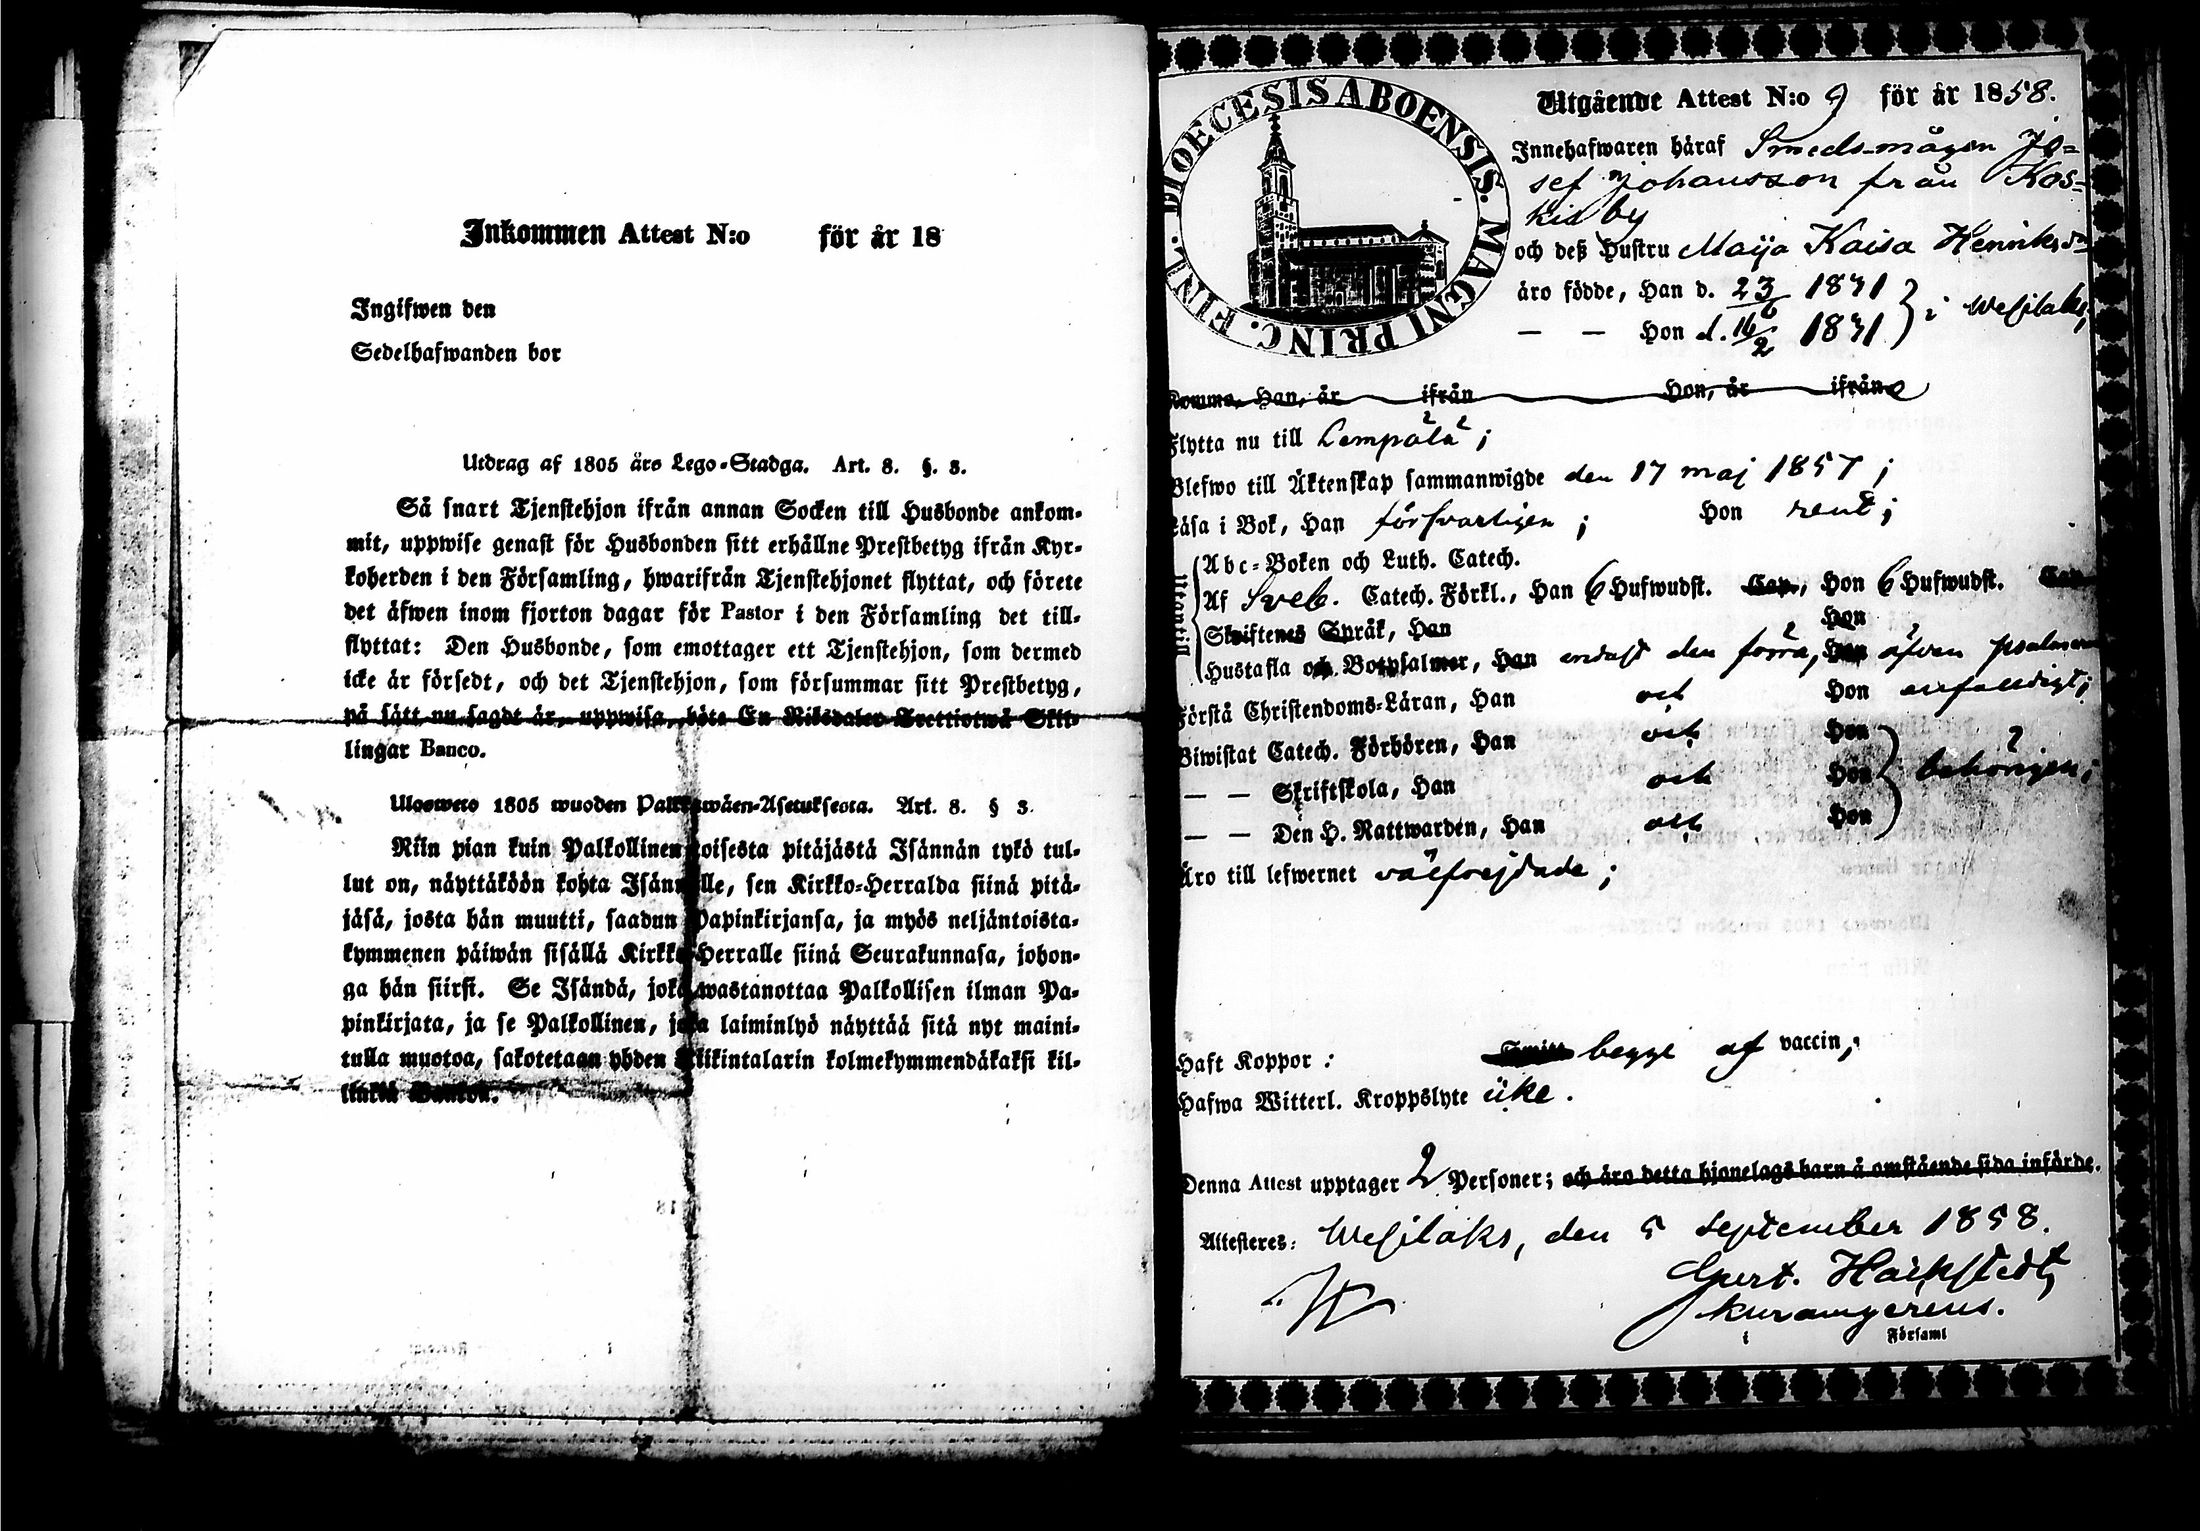 Inkommen Attest N:o för år 18
Ingifwen den
Sedelhafwanden bor
Utdrag af 1805 års Lego-Stadga. Art. 8. §. 3.
Så snart Tjenstehjon ifrån annan Socken till Husbonde ankom-
mit, uppwise genast för Husbonden sitt erhållne Prestbetyg ifrån Kyr-
koherden i den Församling, hwarifrån Tjenstehjonet flyttat, och förete
det äfwen inom fjorton dagar för Pastor i den Församling det till-
flyttat: Den Husbonde, som emottager ett Tjenstehjon, som dermed
icke är försedt, och det Tjenstehjon, som försummar sitt Prestbetyg,
på sätt nu sagdt är, uppwisa, böte En Riksdaler Trettiotwå Skil-
lingar Banco.
Ulosweto 1805 wuoden Palkkawäen-Asetuksesta. Art. 8. § 3.
Niin pian kuin Palkollinen toisesta pitäjästä Isännän tykö tul-
lut on, näyttäköön kohta Isännälle, sen Kirkko-Herralda siinä pitä-
jäsä, josta hän muutti, saadun Papinkirjansa, ja myös neljäntoista-
kymmenen päiwän sisällä Kirkko-Herralle siinä Seurakunnasa, johon-
ga hän siirsi. Se Isändä, joka wastanottaa Palkollisen ilman Pa-
pinkirjata, ja se Palkollinen, joka laiminlyö näyttää sitä nyt maini-
tulla muotoa, sakotetaan yhden Riikintalarin kolmekymmendäkaksi kil-
linkiä Bankos.
DIOECESIS ABOENSIS. MAGNI PRINC. FINL.
Utgående Attest N:o 9 för år 1858.
Innehafwaren häraf Smeds-mågen Jo-
sef Johansson från Kos-
kis by
och deß Hustru Maija Kaisa Henriksdr
äro födde, Han d. 23/6 1831 } i Wesilaks;
— — Hon d. 16/2 1831
Komma, Han, år ifrån Hon, år ifrån
Flytta nu till Lempälä;
Blefwo till Äktenskap sammanwigde den 17 maj 1857;
Läsa i Bok, Han försvarligen; Hon rent;
Utantill
Abc-Boken och Luth. Catech.
Af Sveb. Catech. Förkl., Han 6 Hufwudst. Cap., Hon 6 Hufwudst. Cap
Skriftenes Språk, Han Hon
Hustafla och Botpsalmer, Han endast den förra, Hon äfven psalmerne
Förstå Christendoms-Läran, Han och Hon enfaldigt;
Biwistat Catech. Förhören, Han och Hon
— — Skriftskola, Han och Hon } behörigen;
— — Den H. Nattwarden, Han och Hon
Äro till lefwernet välfrejdade;
Haft Koppor: begge af vaccin;
Hafwa Witterl. Kroppslyte icke.
Denna Attest upptager 2 Personer; och äro detta hjonelags barn å omstående sida införde.
Attesteres: Wesilaks, den 5 September 1858.
i Församl